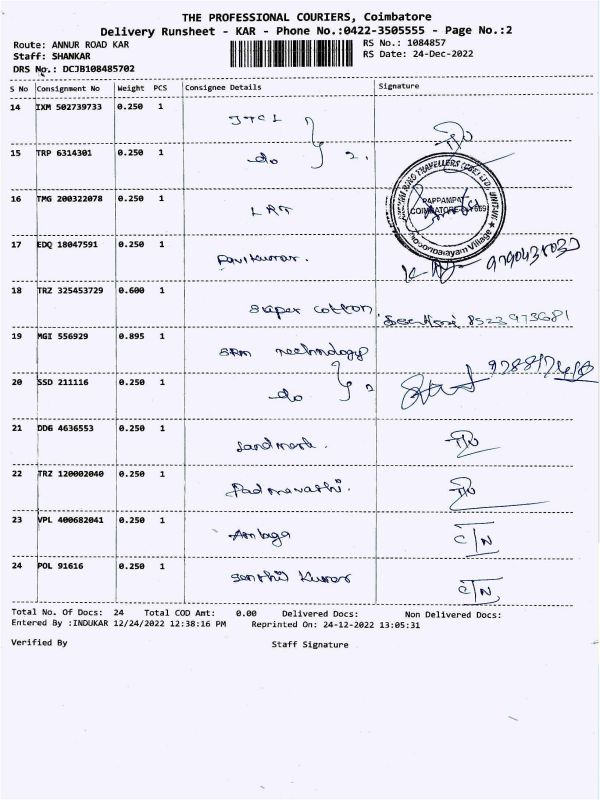 THE PROFESSIONAL COURIERS, Coimbatore
Delivery Runsheet - KAR - Phone No.:0422-3505555 - Page No.:2
Route: ANNUR ROAD KAR RS No.: 1084857
Staff: SHANKAR RS Date: 24-Dec-2022
DRS No.: DCJB108485702
S No Consignment No Weight PCS Consignee Details Signature
14 IXM 502739733 0.250 1
15 TRP 6314301 0.250 1 do 2.
16 TMG 200322078 0.250 1
PAPPAMPAT
17 EDQ 18047591 0.250 1 Pavikumar.
18 TRZ 325453729 0.600 1 super cotton 8523973681
19 MGI 556929 0.895 1 SRM technology
20 SSD 211116 0.250 1 do 2
21 DDG 4636553 0.250 1 Landmark.
22 TRZ 120002040 0.250 1 Padmavathi.
23 VPL 400682041 0.250 1 Ambaga C/N
24 POL 91616 0.250 1 Senthil Kumar C/N
Total No. Of Docs: 24 Total COD Amt: 0.00 Delivered Docs: Non Delivered Docs:
Entered By :INDUKAR 12/24/2022 12:38:16 PM Reprinted On: 24-12-2022 13:05:31
Verified By Staff Signature